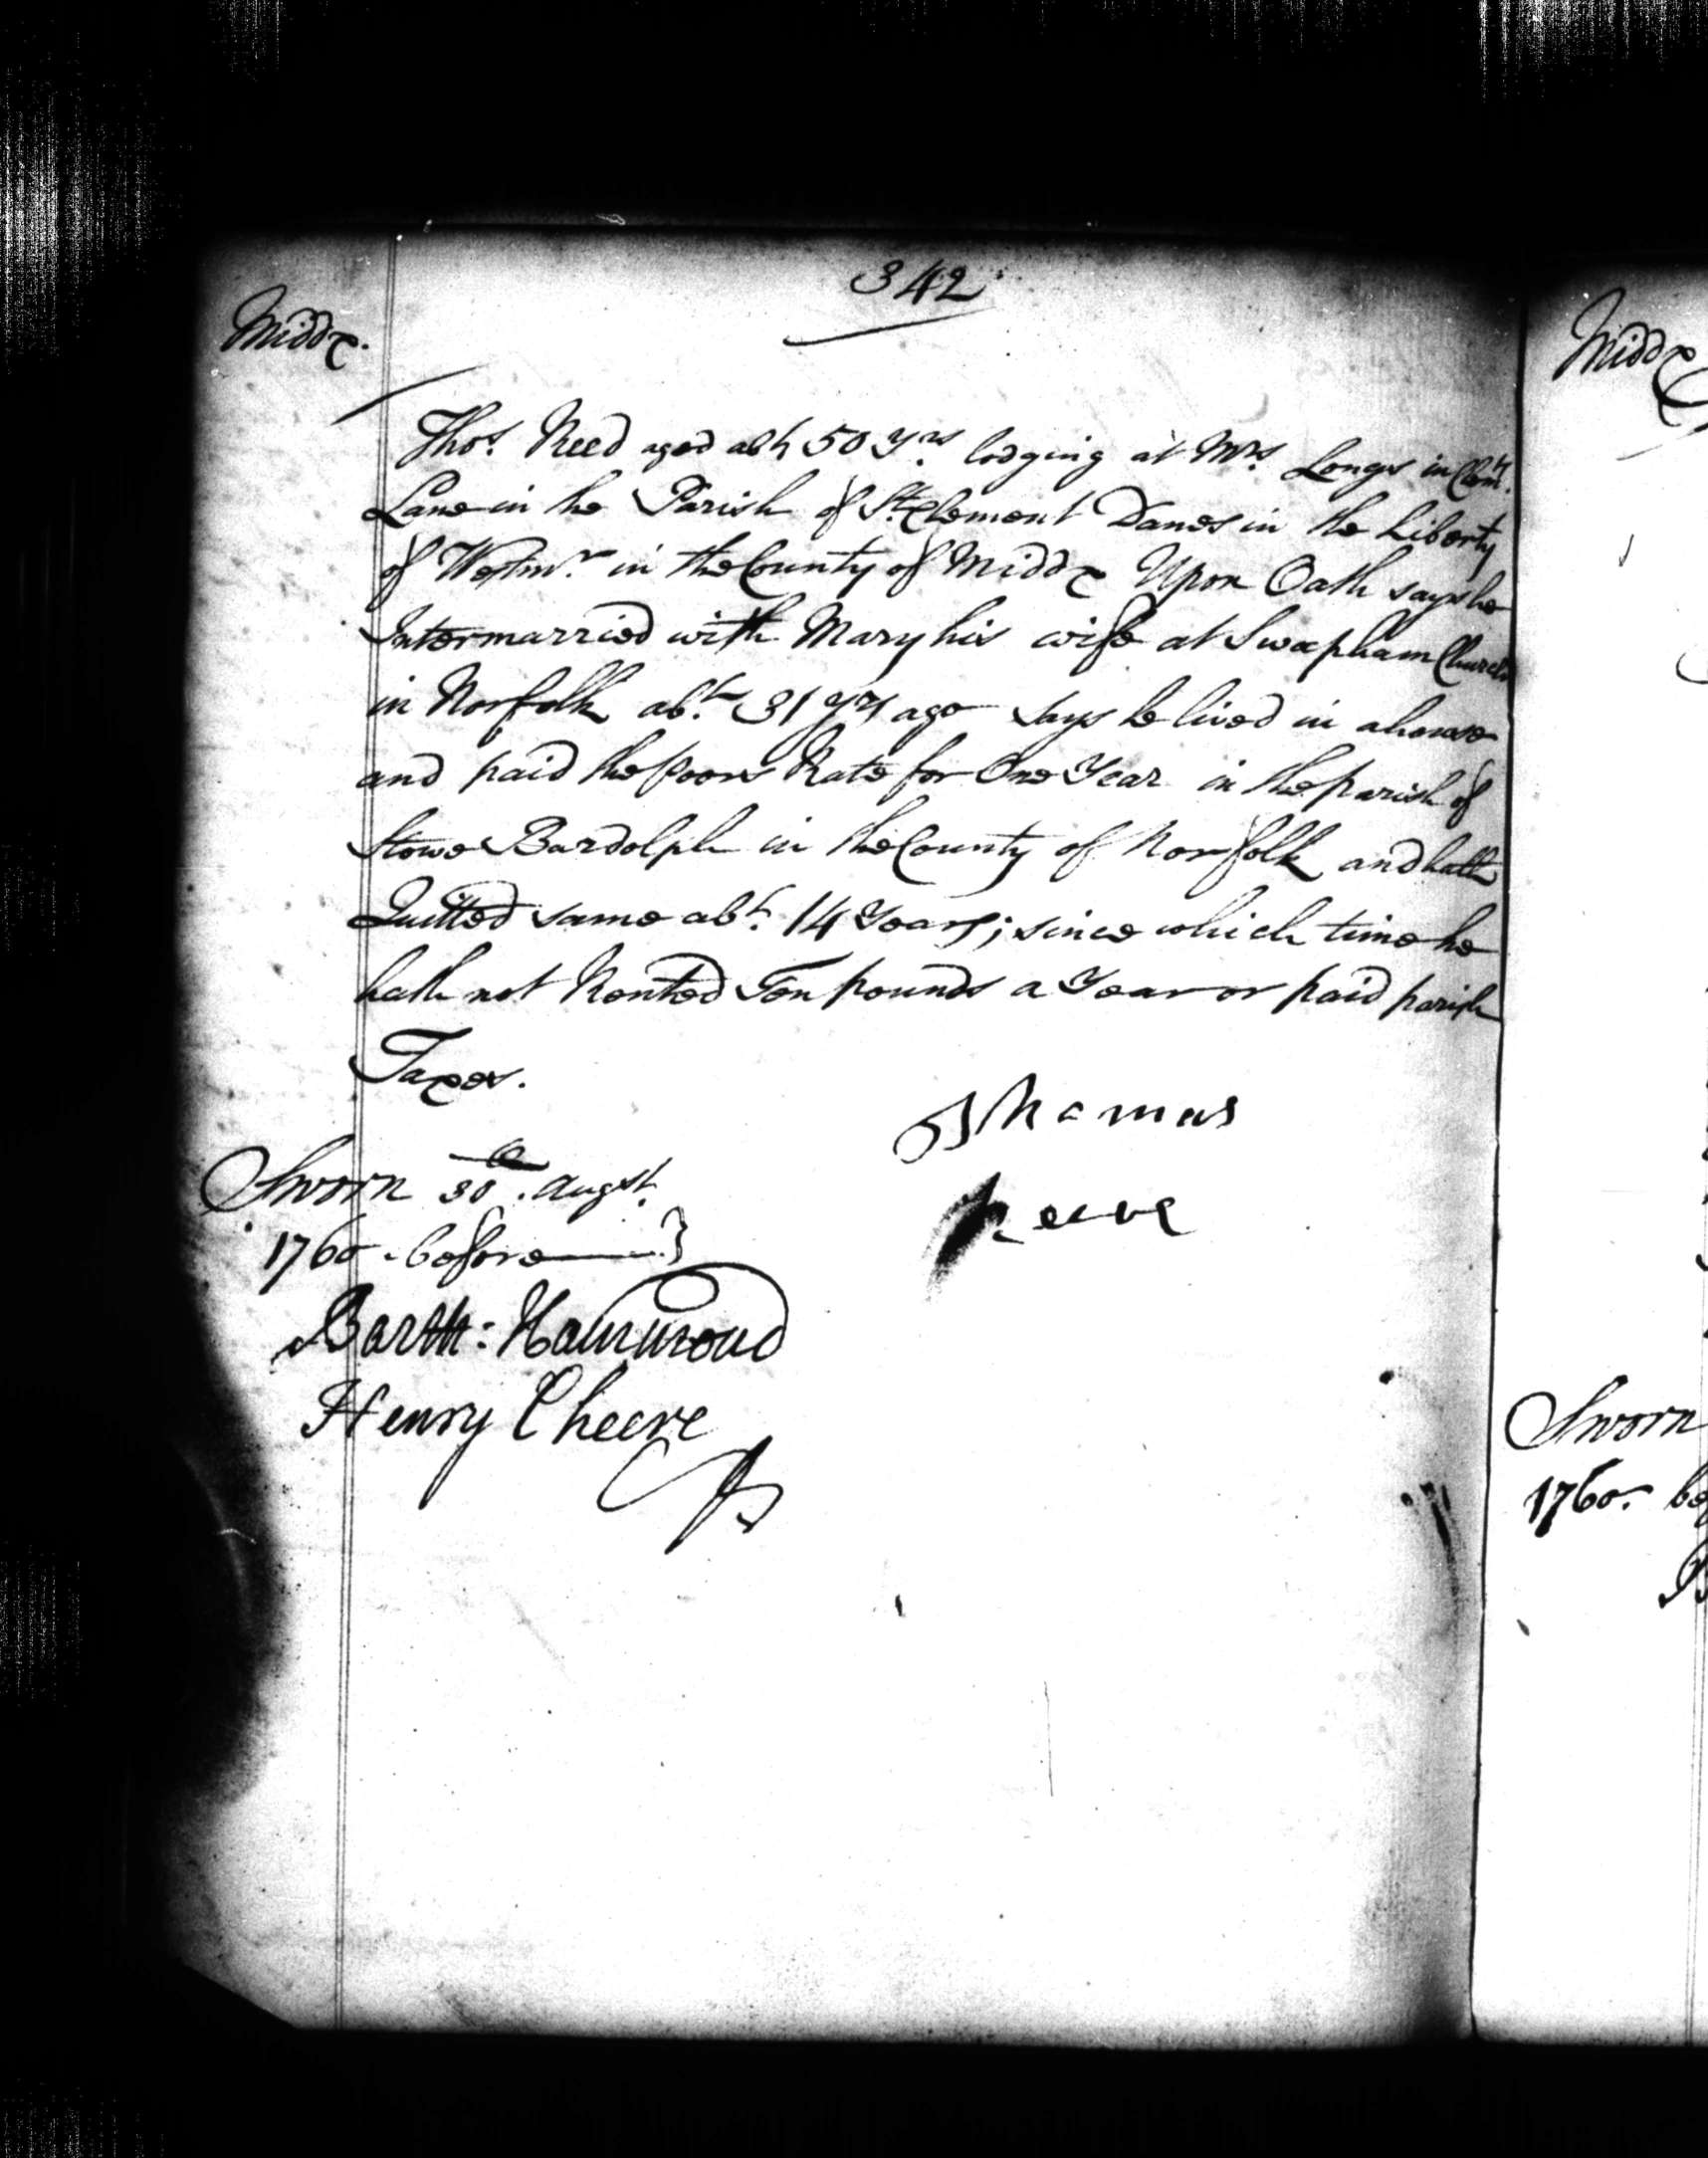 342
Middx.
Thos. Reed aged abt 50 Yrs. lodging at Mrs. Longs in Clemt.
Lane in the Parish of St. Clement Danes in the Liberty
of Westmr. in the County of Middx Upon Oath says he
Intermarried with Mary his wife at Swapham Church
in Norfolk abt. 31 Yrs ago says he lived in a house
and paid the poors Rate for One Year in the parish of
Stowe Bardolph in the County of Norfolk and hath
Quitted same abt. 14 Years; since which time he
hath not Rented Ten pounds a Year or paid parish
Taxes.
Thomas
Reeve
Sworn 30th. Augst.
1760 before
Barth: Hammond
Henry Cheere
Middx
Sworn
1760. be